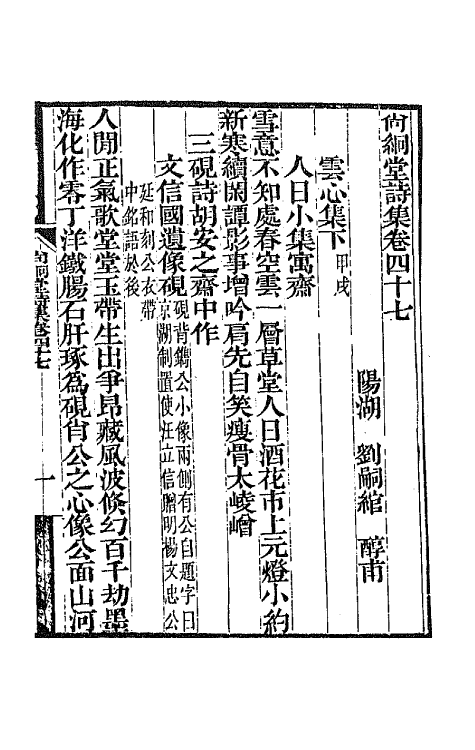 尙絅堂詩集卷四十七
陽湖 劉嗣綰 醇甫
雲心集下甲戌
人日小集寓齋
雪意不知處春空雲一層草堂人日酒花市上元燈小約
新寒續閑譚影事增吟肩先自笑瘦骨太崚嶒
三硯詩胡安之齋中作
文信國遺像硯硯背鐫公小像兩側有公自題字曰
京湖制置使汪立信贈明楊文忠公
延和刻公衣帶
中銘語於後
人閒正氣歌堂堂玉帶生出爭昂藏風波倏幻百千劫墨
海化作零丁洋鐵腸石肝琢為硯肖公之心像公面山河
尙絅堂詩集卷四十七
一